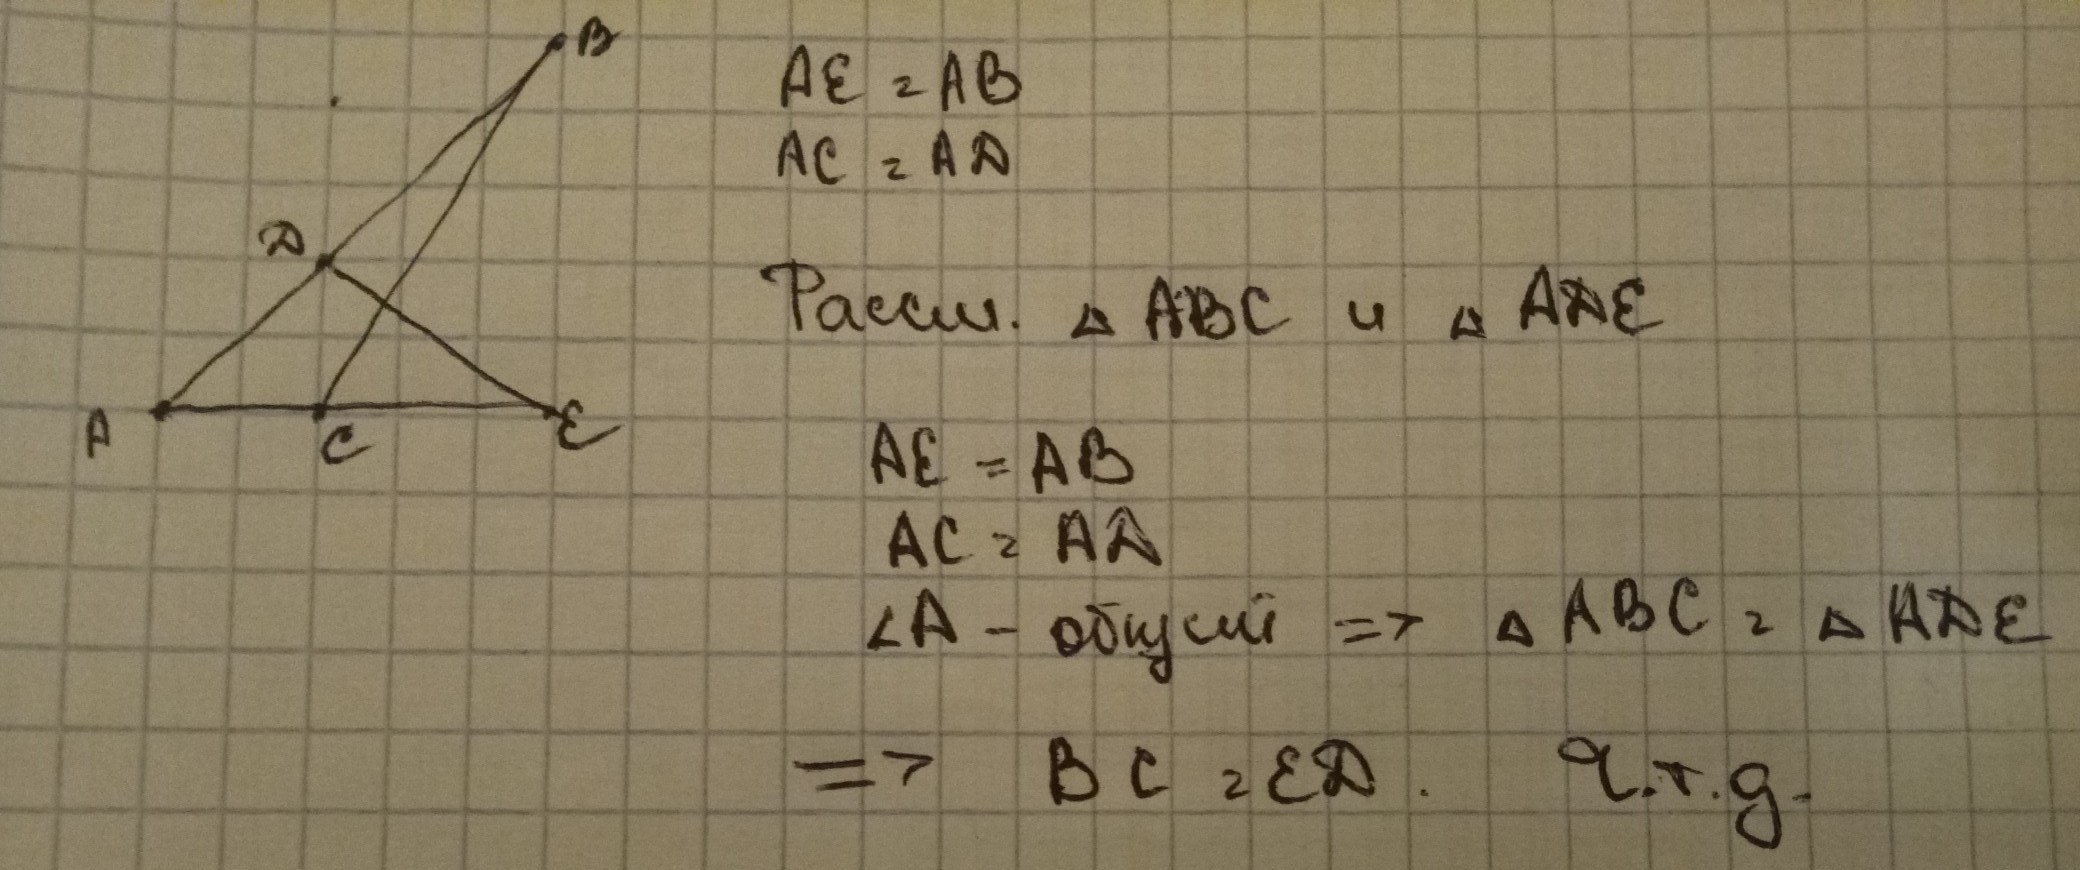 B
D
A
C
E
AE = AB
AC = AD
Рассм. △ ABC и △ ADE
AE = AB
AC = AD
∠A - общий => △ ABC = △ ADE
=> BC = ED. Ч.т.д.